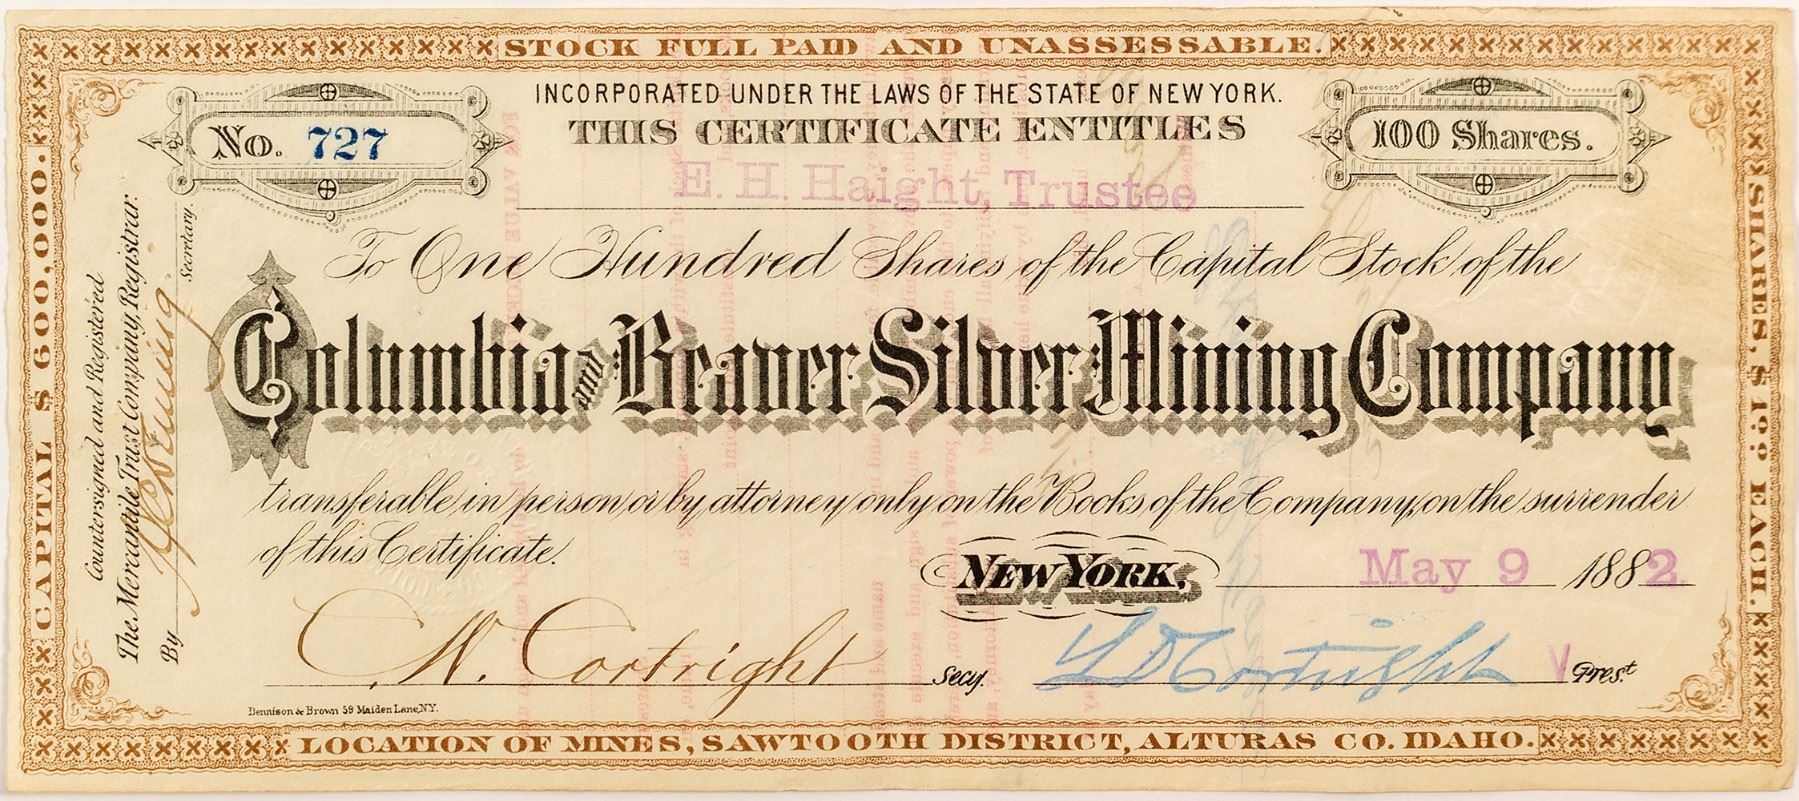 STOCK FULL PAID AND UNASSESSABLE.
INCORPORATED UNDER THE LAWS OF THE STATE OF NEW YORK.
No. 727
THIS CERTIFICATE ENTITLES
100 Shares.
E. H. Haight, Trustee
To One Hundred Shares of the Capital Stock of the
Columbia and Beaver Silver Mining Company
transferable in person or by attorney only on the Books of the Company, on the surrender
of this Certificate.
NEW YORK, May 9 1882
N. Cortright Secy.
L D Cortright V Prest
Dennison & Brown 59 Maiden Lane, NY.
LOCATION OF MINES, SAWTOOTH DISTRICT, ALTURAS CO. IDAHO.
CAPITAL $600,000.
SHARES, $10.00 EACH.
Countersigned and Registered
The Mercantile Trust Company, Registrar.
By Secretary.